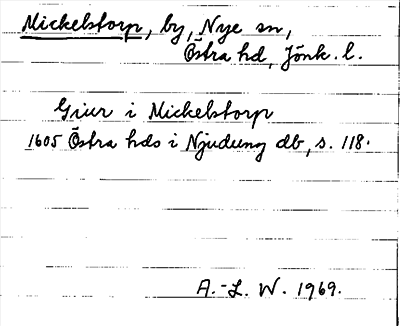 Mickelstorp, by, Nye sn,
Östra hd, Jönk. l.
Giur i Mickelstorp
1605 Östra hds i Njudung db, s. 118.
A.-L. W. 1969.